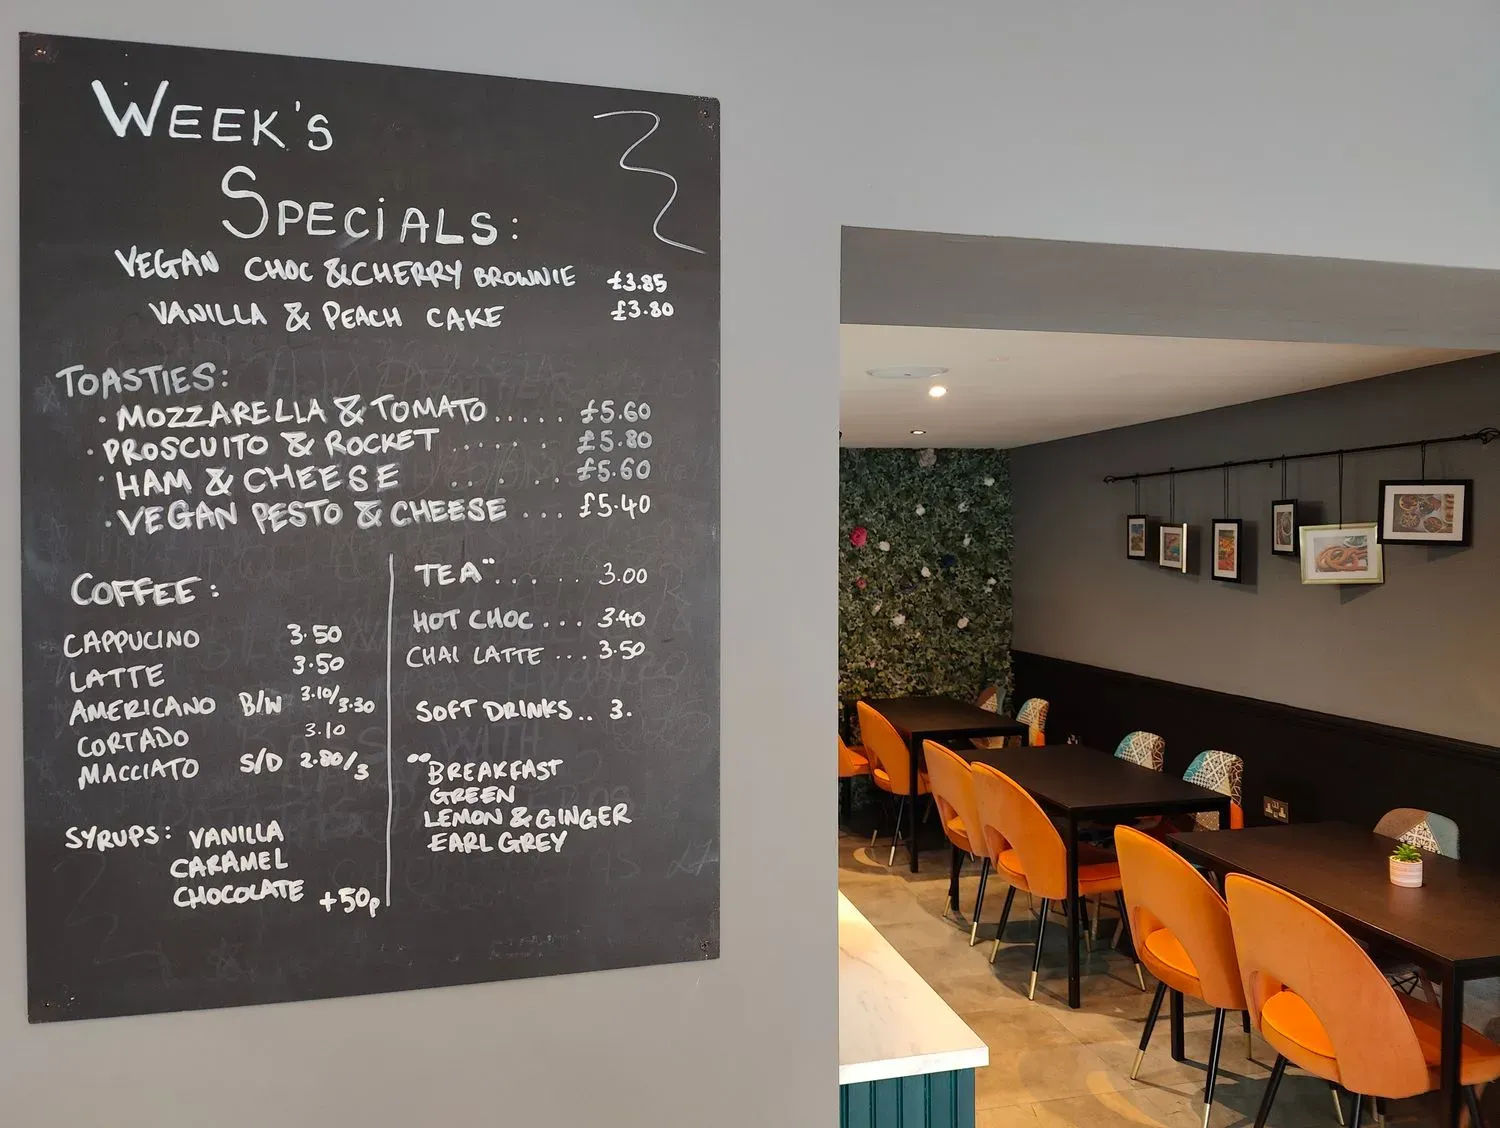 WEEK'S
SPECIALS:
VEGAN CHOC & CHERRY BROWNIE £3.85
VANILLA & PEACH CAKE £3.80
TOASTIES:
· MOZZARELLA & TOMATO..... £5.60
· PROSCUITO & ROCKET ...... £5.80
· HAM & CHEESE ..... £5.60
· VEGAN PESTO & CHEESE ... £5.40
COFFEE:
CAPPUCINO 3.50
LATTE 3.50
AMERICANO B/W 3.10/3.30
CORTADO 3.10
MACCIATO S/D 2.80/3
SYRUPS: VANILLA
CARAMEL
CHOCOLATE +50p
TEA°°...... 3.00
HOT CHOC ... 3.40
CHAI LATTE ... 3.50
SOFT DRINKS.. 3.
°°BREAKFAST
GREEN
LEMON & GINGER
EARL GREY